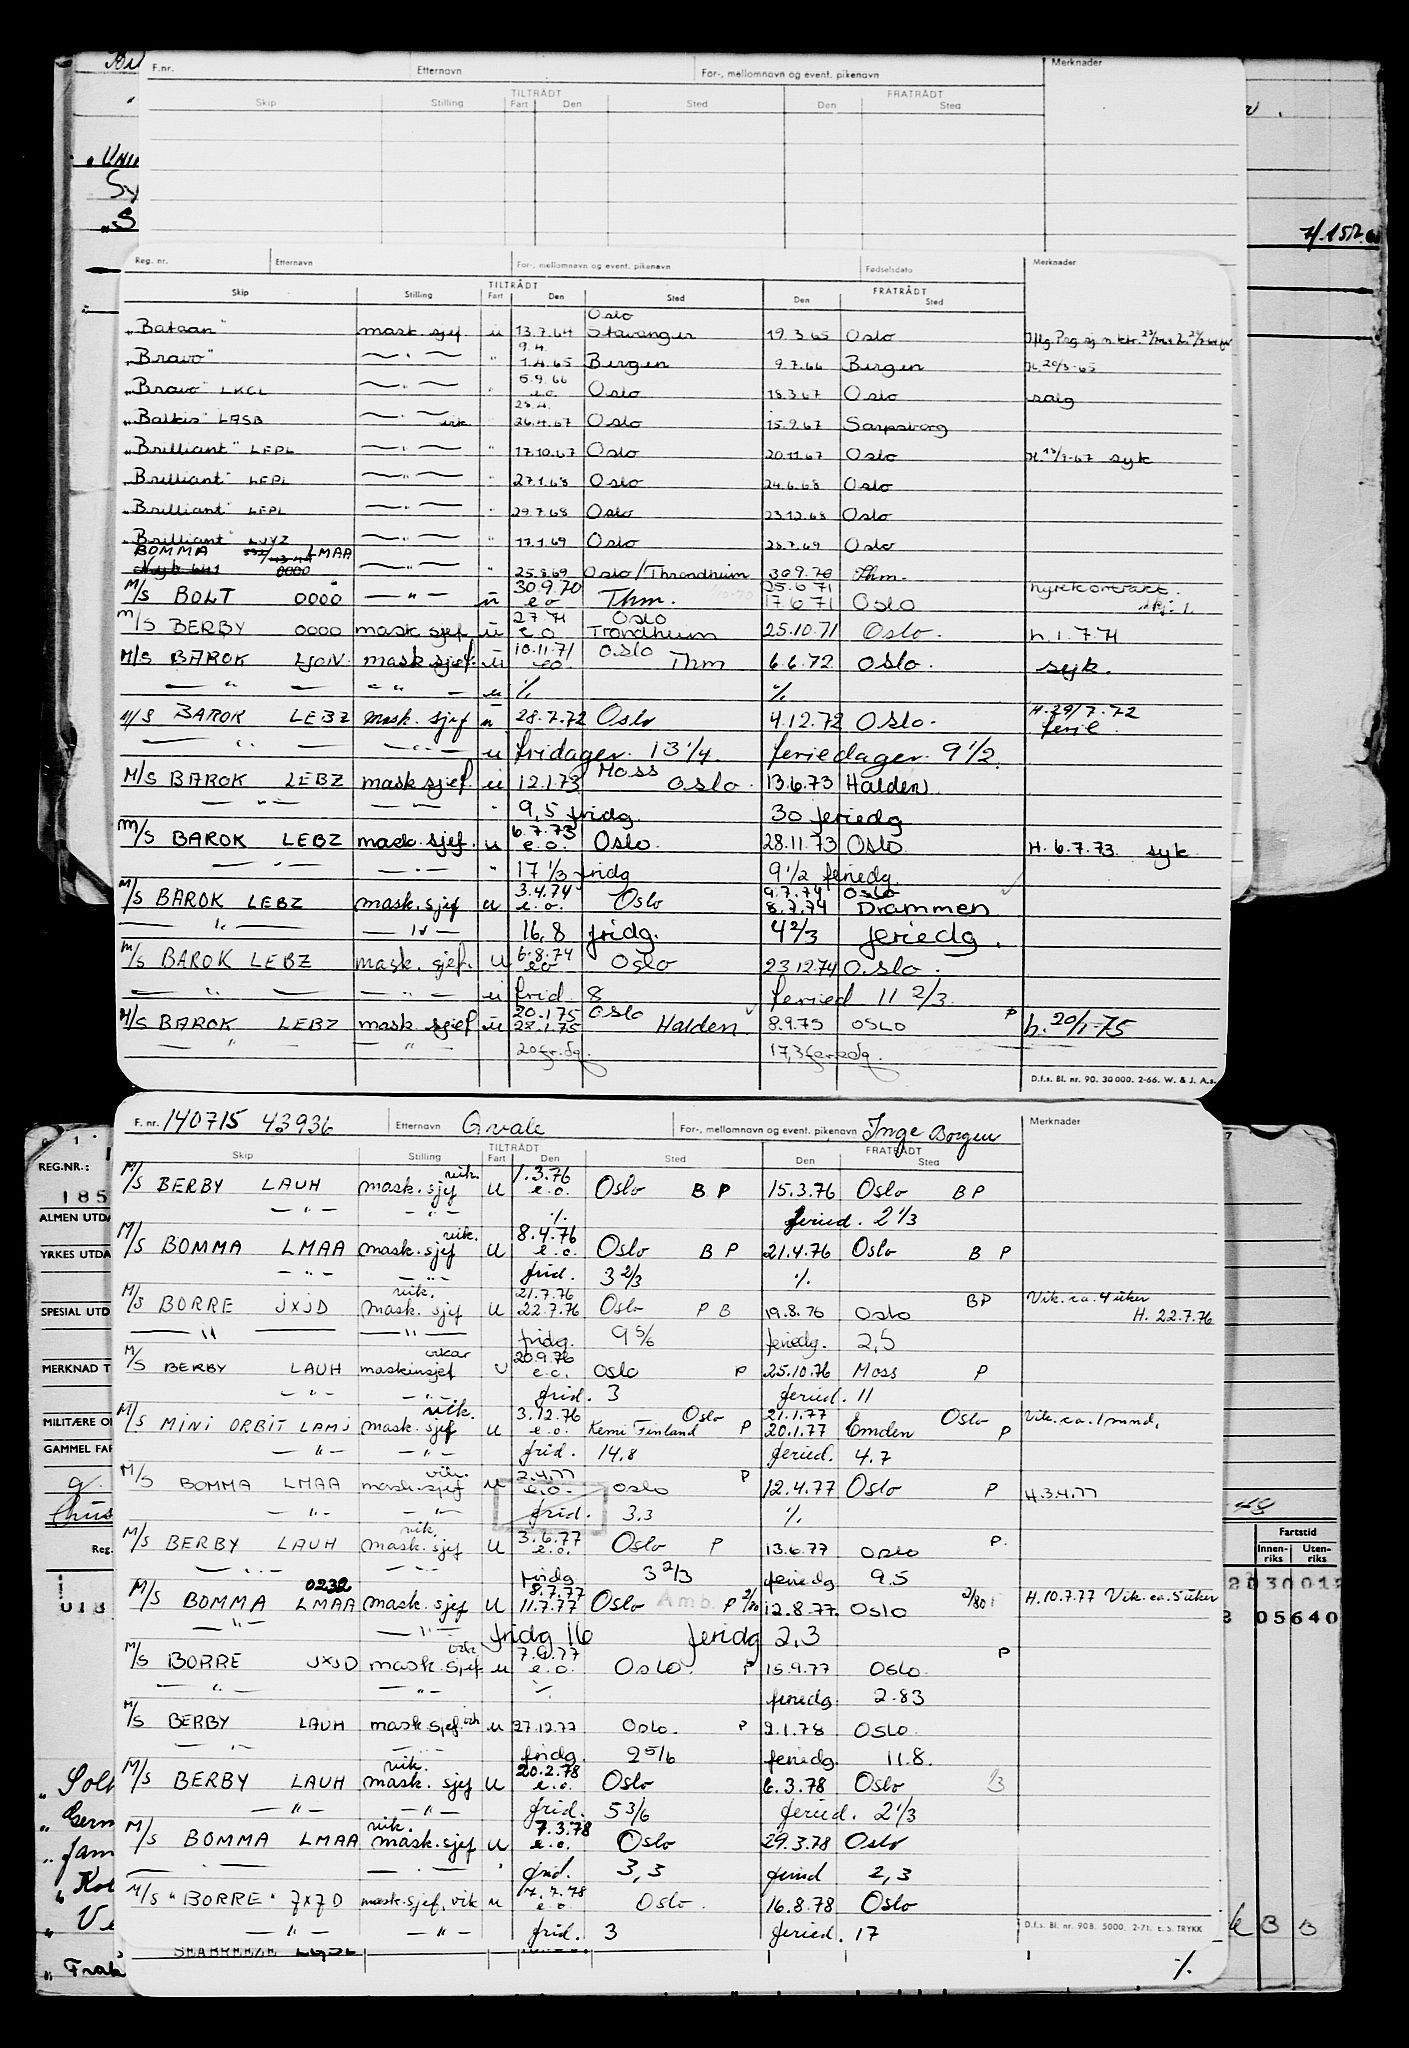 F.nr. Etternavn For-, mellomnavn og event. pikenavn Merknader
Skip Stilling TILTRÅDT Fart Den Sted FRATRÅDT Den Sted
7/.152.
Reg. nr. Etternavn For-, mellomnavn og event. pikenavn Fødselsdato Merknader
TILTRÅDT FRATRÅDT
Skip Stilling Fart Den Sted Den Sted
Oslo
„Bataan" mask. sjef u 13.7.64 Stavanger 19.3.65 Oslo
9.4
„Bravo" — " — " 1.4.65 Bergen 9.7.66 Bergen H.20/3-65
5.9.66
„Bravo" LKCL — " — " e.o. Oslo 18.3.67 Oslo salg
„Baltis" LASB — " — vik " 26.4.67 Oslo 15.9.67 Sarpsborg
„Brilliant" LEPL — " — " 17.10.67 Oslo 20.11.67 Oslo syk
„Brilliant" LEPL — " — " 27.1.68 Oslo 24.6.68 Oslo
„Brilliant" LEPL — " — " 29.7.68 Oslo 23.12.68 Oslo
„Brilliant" LJYZ — " — " 17.1.69 Oslo 28.7.69 Oslo
BOMMA LMAA
Nybygg 641 0000 — " — " 25.8.69 Oslo/Throndheim 30.9.70 Thm.
30.9.70 25.6.71 hyrekontrakt.
M/S BOLT 0000 — " — u e.o Thm. 17.6.71 Oslo
2.7.71 Oslo
M/S BERBY 0000 mask sjef u e.o Trondheim 25.10.71 Oslo. h.1.7.71
10.11.71 Oslo
M/S BAROK LJON mask sjef. u e.o Thm 6.6.72 Oslo. syk.
— " — — " — u ⁒ ⁒
M/S BAROK LEBZ mask. sjef u 28.7.72 Oslo 4.12.72 Oslo. H.29/7.72 ferie
— " — — " — u fridager. 13 1/4. feriedager. 9 1/2.
Moss
M/S BAROK LEBZ mask sjef. u 12.1.73 Oslo. 13.6.73 Halden
— " — — " — " 9,5 fridg. 30 feriedg
6.7.73
M/S BAROK LEBZ mask. sjef. u e.o. Oslo. 28.11.73 Oslo H. 6.7.73 syk
— " — — " — " 17 1/3 fridg 9 1/2 feriedg.
3.4.74 9.7.74 Oslo
M/S BAROK LEBZ mask. sjef u e.o. Oslo 8.7.74 Drammen
— " — — " — 16,8 fridg. 4 2/3 feriedg.
6.8.74
M/S BAROK LEBZ mask. sjef. u e.o Oslo 23.12.74 Oslo.
— " — — " — u frid. 8 feried 11 2/3
20.1.75 Oslo P
M/S BAROK LEBZ mask sjef u 28.1.75 Halden 8.9.75 OSLO h.20/1-75
" — " — 20 fr.dg. 17,3 feriedg.
D.f.s. Bl. nr. 90. 30 000. 2-66. W. & J. A.s.
F. nr. 140715 43936 Etternavn Gvale For-, mellomnavn og event. pikenavn Inge Borgen Merknader
TILTRÅDT FRATRÅDT
Skip Stilling Fart Den Sted Den Sted
vik. 1.3.76
M/S BERBY LAUH mask. sjef u e.o. Oslo B P 15.3.76 Oslo B P
— " — — " — ⁒ feried. 2 1/3
vik. 8.4.76
M/S BOMMA LMAA mask. sjef u e.o. Oslo B P 21.4.76 Oslo B P
— " — — " — frid. 3 2/3 ⁒
vik. 21.7.76 BP Vik. ca. 4 uker
M/S BORRE JXJD mask. sjef u 22.7.76 Oslo P B 19.8.76 Oslo H. 22.7.76
— " — — " — fridg. 9 5/6 feriedg. 2,5
vikar 20.9.76
M/S BERBY LAUH maskinsjef u e.o. Oslo P 25.10.76 Moss P
— " — — " — frid. 3 feried. 11
vik. 3.12.76 Oslo 21.1.77 Oslo Vik. ca. 1 mnd.
M/S MINI ORBIT LAMJ mask. sjef u e.o. Kemi Finland P 20.1.77 Emden P
— " — — " — frid. 14,8 feried. 4.7
vik. 2.4.77 P
M/S BOMMA LMAA mask. sjef u e.o. Oslo 12.4.77 Oslo P H.3.4.77
— " — — " — frid. 3.3 ⁒
vik. 3.6.77 P.
M/S BERBY LAUH mask. sjef u e.o. Oslo P 13.6.77 Oslo
— " — — " — fridg 3 2/3 feriedg 9.5
0232 8.7.77
M/S BOMMA LMAA mask. sjef u 11.7.77 Oslo Amb. P 2/80 12.8.77 Oslo 2/80 H.10.7.77 Vik. ca. 5 uker
— " — — " — fridg 16 feridg 2,3
vik 7.9.77 P
M/S BORRE JXJD mask sjef u e.o. Oslo. P 15.9.77 Oslo.
— " — — " — ⁒ feriedg. 2.83
M/S BERBY LAUH mask. sjef. vik u 27.12.77 Oslo. P 2.1.78 Oslo.
— " — — " — fridg. 2 5/6 feriedg. 11.8.
vik. 20.2.78
M/S BERBY LAUH mask. sjef u e.o. Oslo 6.3.78 Oslo
— " — — " — frid. 5 3/6 feried. 2 1/3
vik. 7.3.78
M/S BOMMA LMAA mask. sjef u e.o. Oslo 29.3.78 Oslo
— " — — " — frid. 3,3 feried 2,3
M/S "BORRE" JXJD mask. sjef. vik u 17.7.78 e.o. Oslo. 16.8.78 Oslo
— " — — " — frid. 3 feried. 17
D.f.s. Bl. nr. 90B. 5000. 2-71. E. S. TRYKK
⁒
REG.NR.:
185
ALMEN UTDA
YRKES UTDA
SPESIAL UTD
MERKNAD T
MILITÆRE O
GAMMEL FAR
Reg.
018
Fartstid
Innen-riks Uten-riks
05640